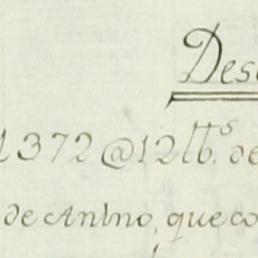 Des
1372@12lb.s de
de Anino, que co